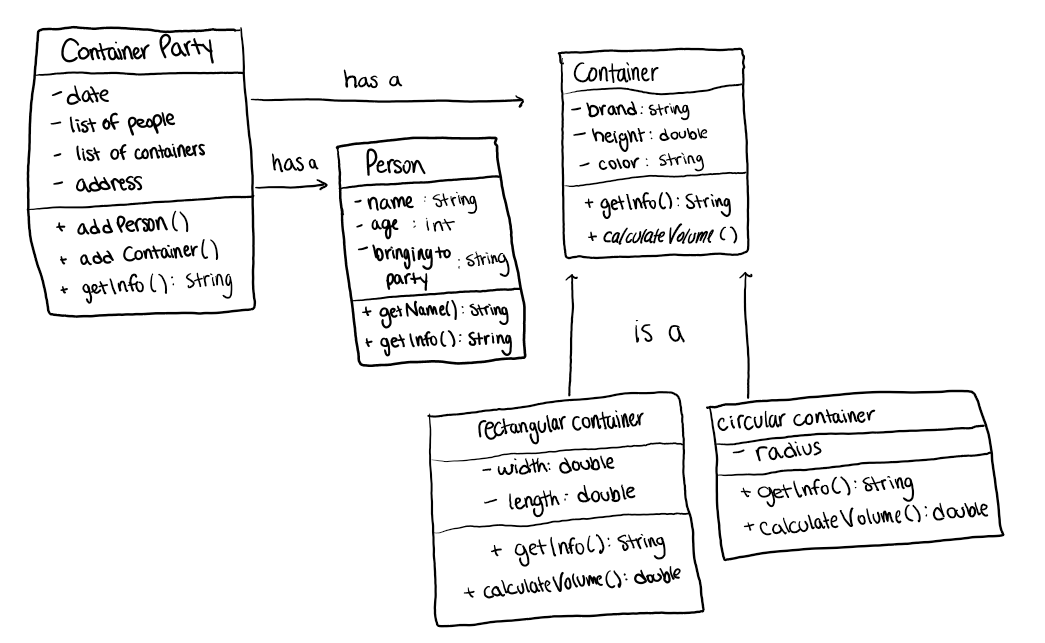 Container Party
- date
- list of people
- list of containers
- address
+ addPerson()
+ add Container()
+ getInfo(): String
has a
has a
Person
- name : String
- age : int
- bringing to party : String
+ getName(): String
+ getInfo(): String
Container
- brand: String
- height: double
- color: String
+ getInfo(): String
+ calculateVolume()
is a
rectangular container
- width: double
- length: double
+ getInfo(): String
+ calculateVolume(): double
circular container
- radius
+ getInfo(): String
+ calculateVolume(): double